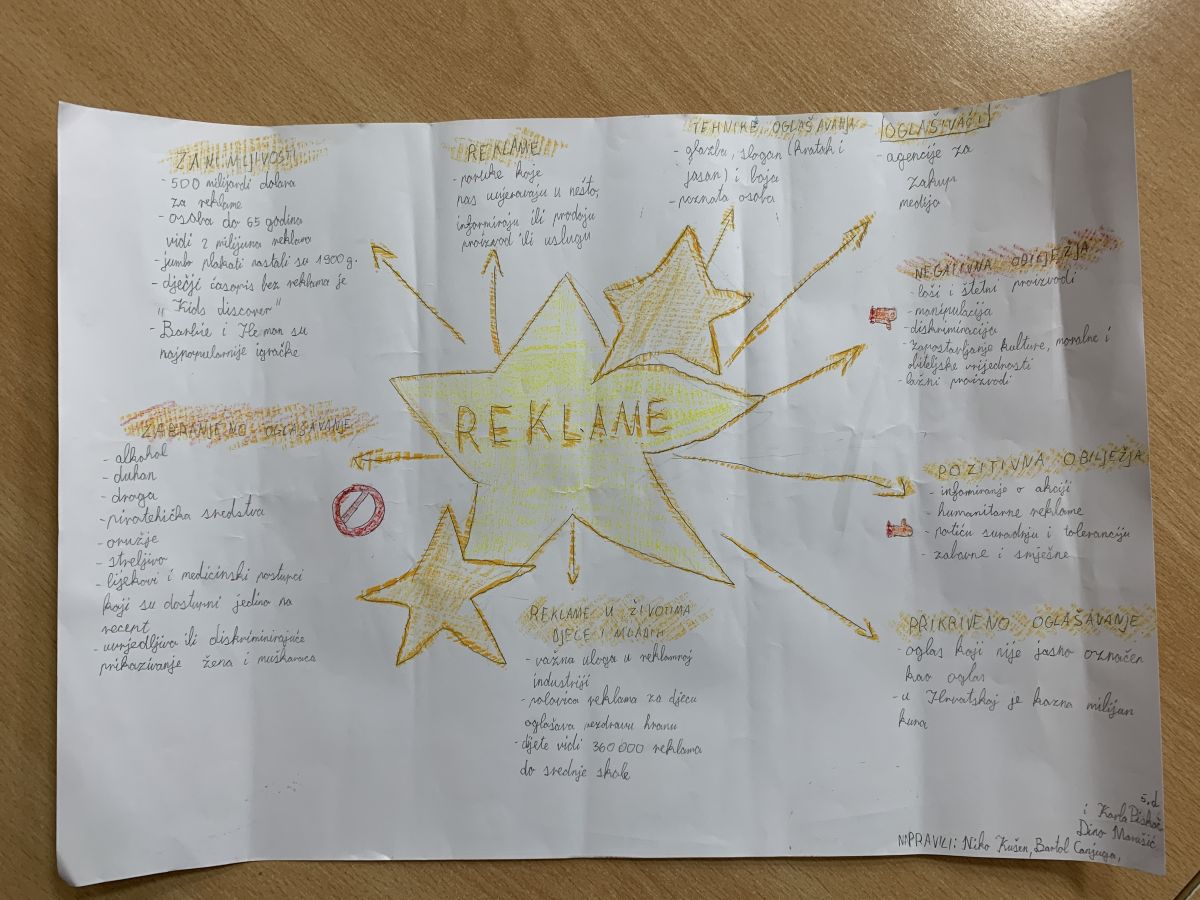 ZANIMLJIVOSTI
- 500 milijardi dolara
za reklame
- osoba do 65 godina
vidi 2 milijuna reklama
- jumbo plakati nastali su 1900 g.
- dječji časopis bez reklama je
"Kids discover"
- Barbie i He man su
najpopularnije igračke
REKLAME
- poruke koje
nas uvjeravaju u nešto,
informiraju ili prodaju
proizvod ili uslugu
TEHNIKE OGLAŠAVANJA
- glazba, slogan (kratak i
jasan) i boja
- poznata osoba
OGLAŠIVAČI
- agencije za
zakup
medija
NEGATIVNA OBILJEŽJA
- loši i štetni proizvodi
- manipulacija
- diskriminacija
- zapostavljanje kulture, moralne i
obiteljske vrijednosti
- lažni proizvodi
REKLAME
ZABRANJENO OGLAŠAVANJE
- alkohol
- duhan
- droga
- piratehička sredstva
- oružje
- streljivo
- lijekovi i medicinski postupci
koji su dostupni jedino na
recept
- uvrjedljivo ili diskriminirajuće
prikazivanje žena i muškaraca
POZITIVNA OBILJEŽJA
- infomiranje o akciji
- humanitarne reklame
- potiču suradnju i toleranciju
- zabavne i smješne
REKLAME U ŽIVOTIMA
DJECE I MLADIH
- važna uloga u reklamnoj
industriji
- polovica reklama za djecu
oglašava nezdravu hranu
- dijete vidi 360 000 reklama
do srednje škole
PRIKRIVENO OGLAŠAVANJE
- oglas koji nije jasno označen
kao oglas
- u Hrvatskoj je kazna milijun
kuna
5.d
i Karla
Dino Marušić
NAPRAVILI: Niko Kušen, Bartol Canjuga,